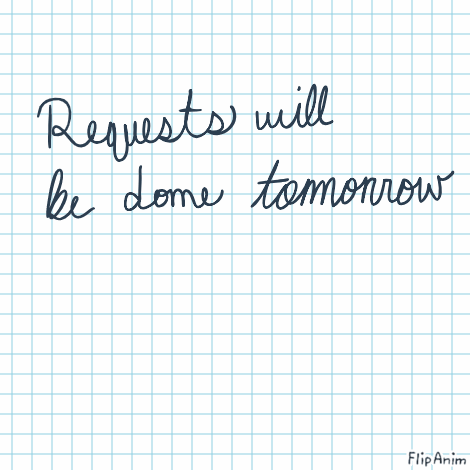 Requests will
be done tomorrow
FlipAnim